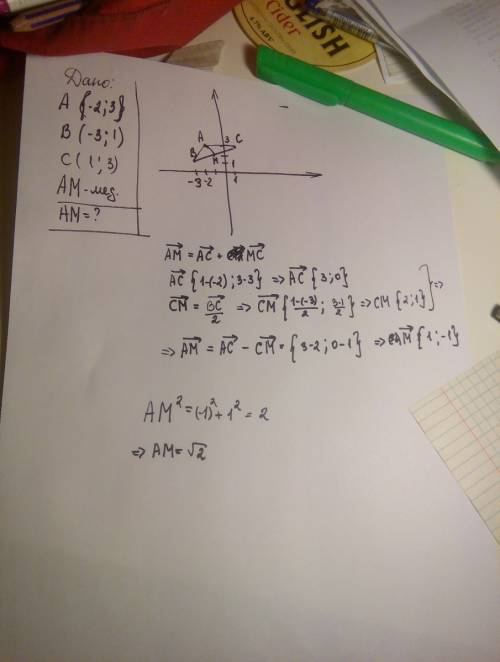 ENGLISH
Cider
4.7% ABV
Дано:
A {-2; 3}
B (-3; 1)
C (1; 3)
AM - мед.
AM = ?
A 3 C
B M 1
-3 -2 1
AM = AC + MC
AC {1-(-2); 3-3} => AC {3; 0}
CM = BC/2 => CM {1-(-3)/2; 3-1/2} => CM {2; 1} } =>
=> AM = AC - CM = {3-2; 0-1} => M {1; -1}
AM² = (-1)² + 1² = 2
=> AM = √2